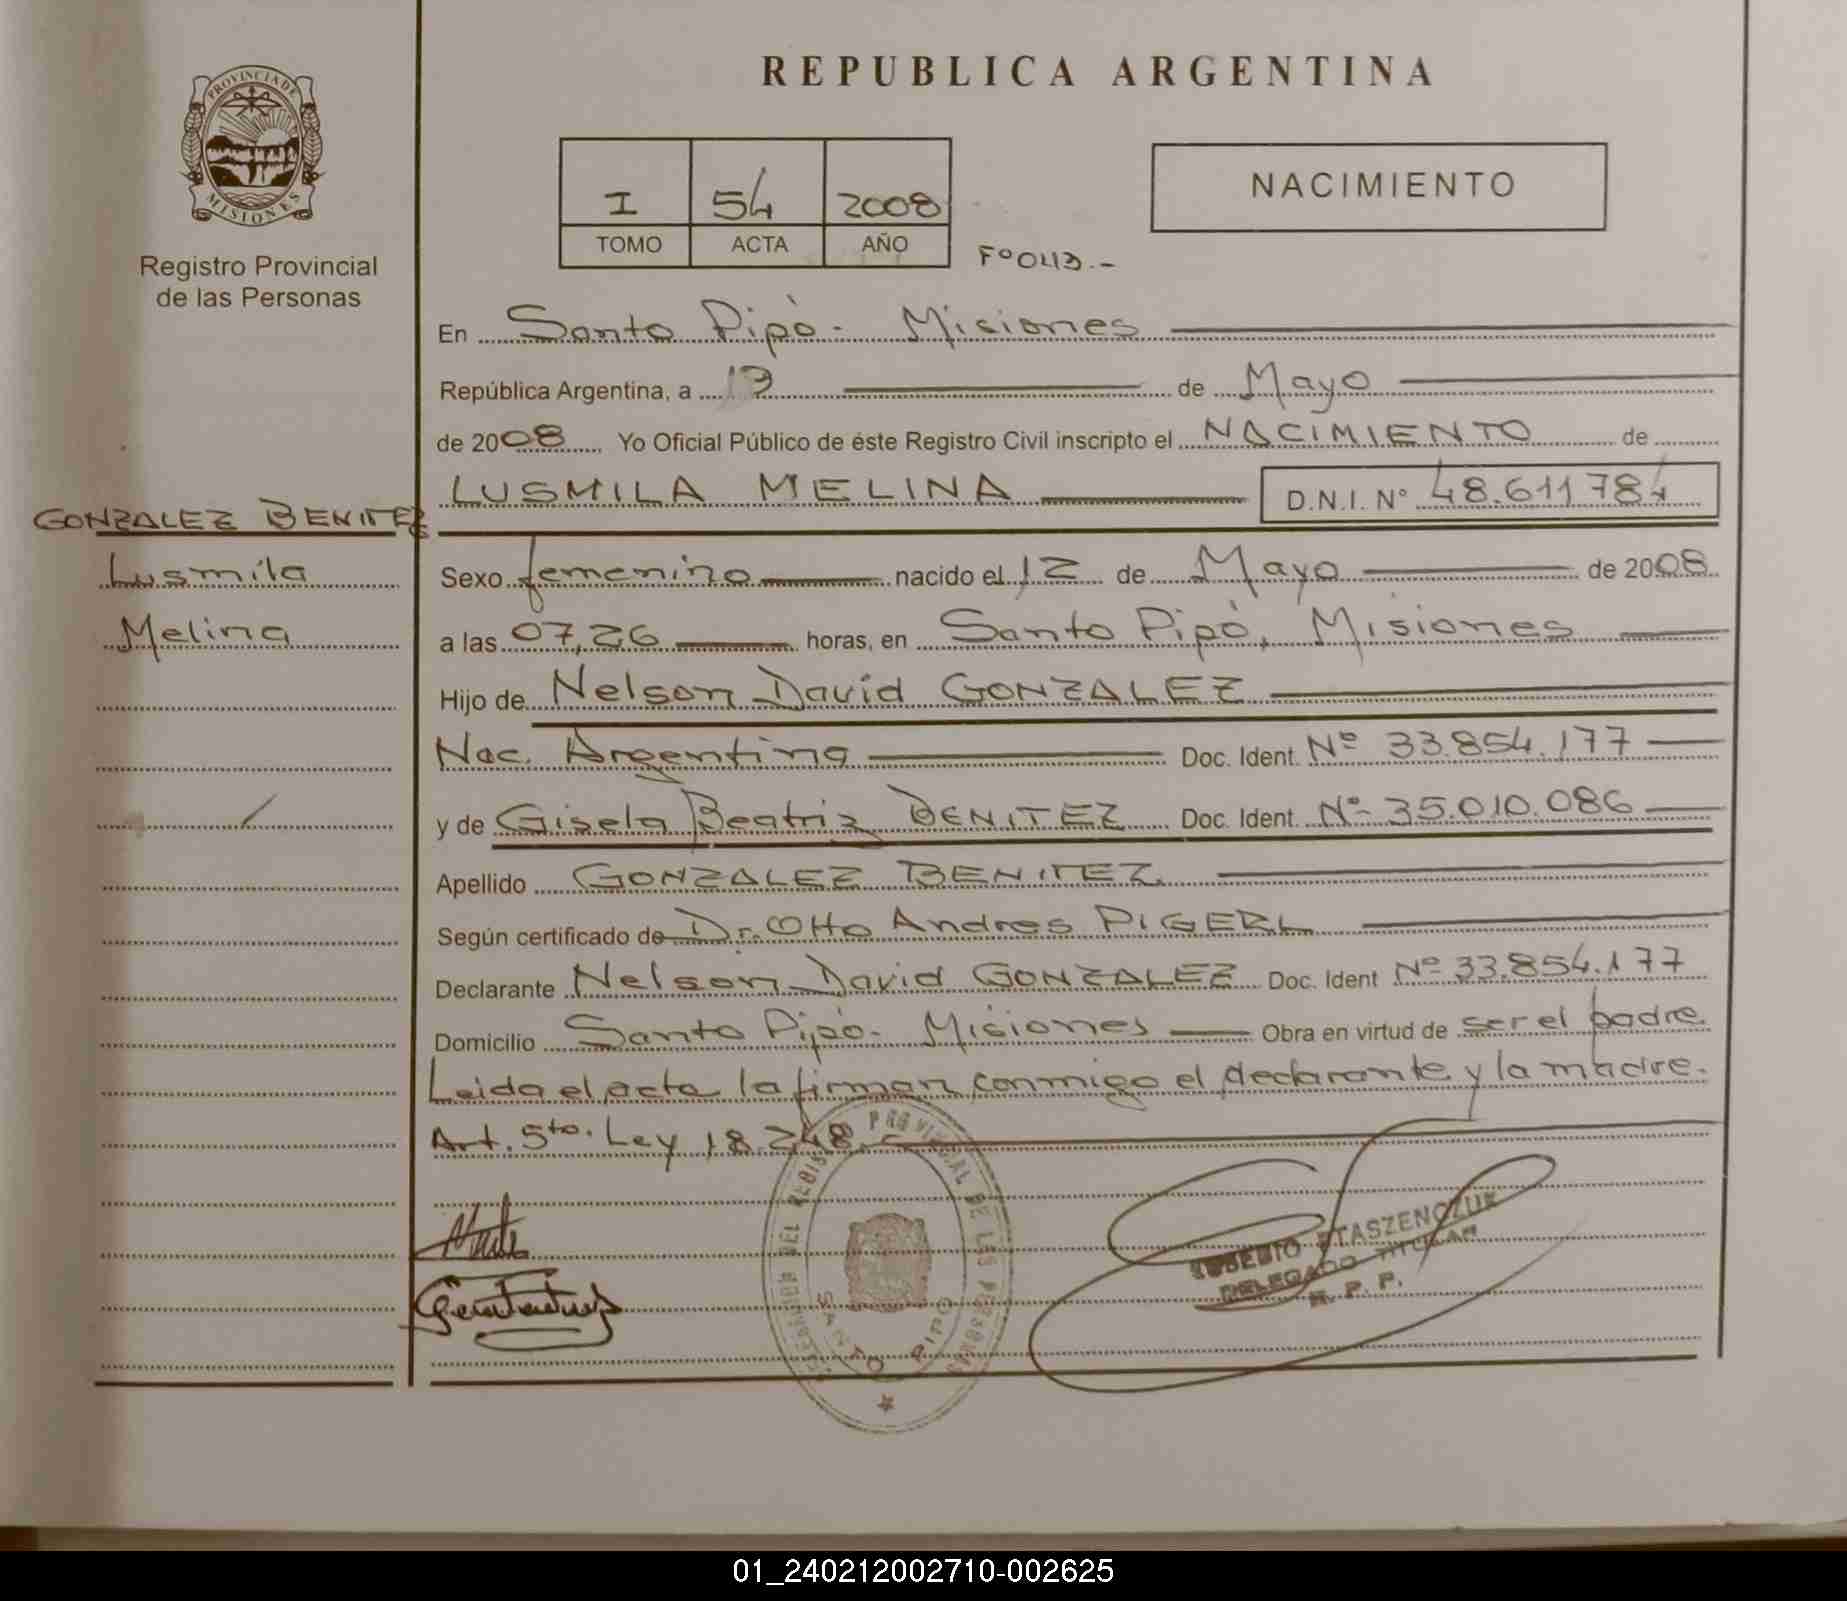 REPUBLICA ARGENTINA
PROVINCIA DE
MISIONES
Registro Provincial
de las Personas
I 54 2008
TOMO ACTA AÑO
Fº 043.-
NACIMIENTO
En Santo Pipò - Misiones
República Argentina, a 13 de Mayo
de 2008 Yo Oficial Público de éste Registro Civil inscripto el NACIMIENTO de
LUSMILA MELINA D.N.I. Nº 48.611784
GONZALEZ BENITEZ
Lusmila
Melina
Sexo femenino nacido el 12 de Mayo de 2008
a las 07,26 horas, en Santo Pipò, Misiones
Hijo de Nelson David GONZALEZ
Nac. Argentina Doc. Ident. Nº 33.854.177
y de Gisela Beatriz BENITEZ Doc. Ident. Nº 35.010.086
Apellido GONZALEZ BENITEZ
Según certificado de Dr. Otto Andres PIGERL
Declarante Nelson David GONZALEZ Doc. Ident Nº 33.854.177
Domicilio Santo Pipò - Misiones Obra en virtud de ser el padre.
Leida el acta la firman conmigo el declarante y la madre.
Art. 5to. Ley 18.248.
PROVINCIAL DE LAS PERSONAS
SANTO PIPO
EUSEBIO STASZENCZUK
DELEGADO TITULAR
R. P. P.
01_240212002710-002625